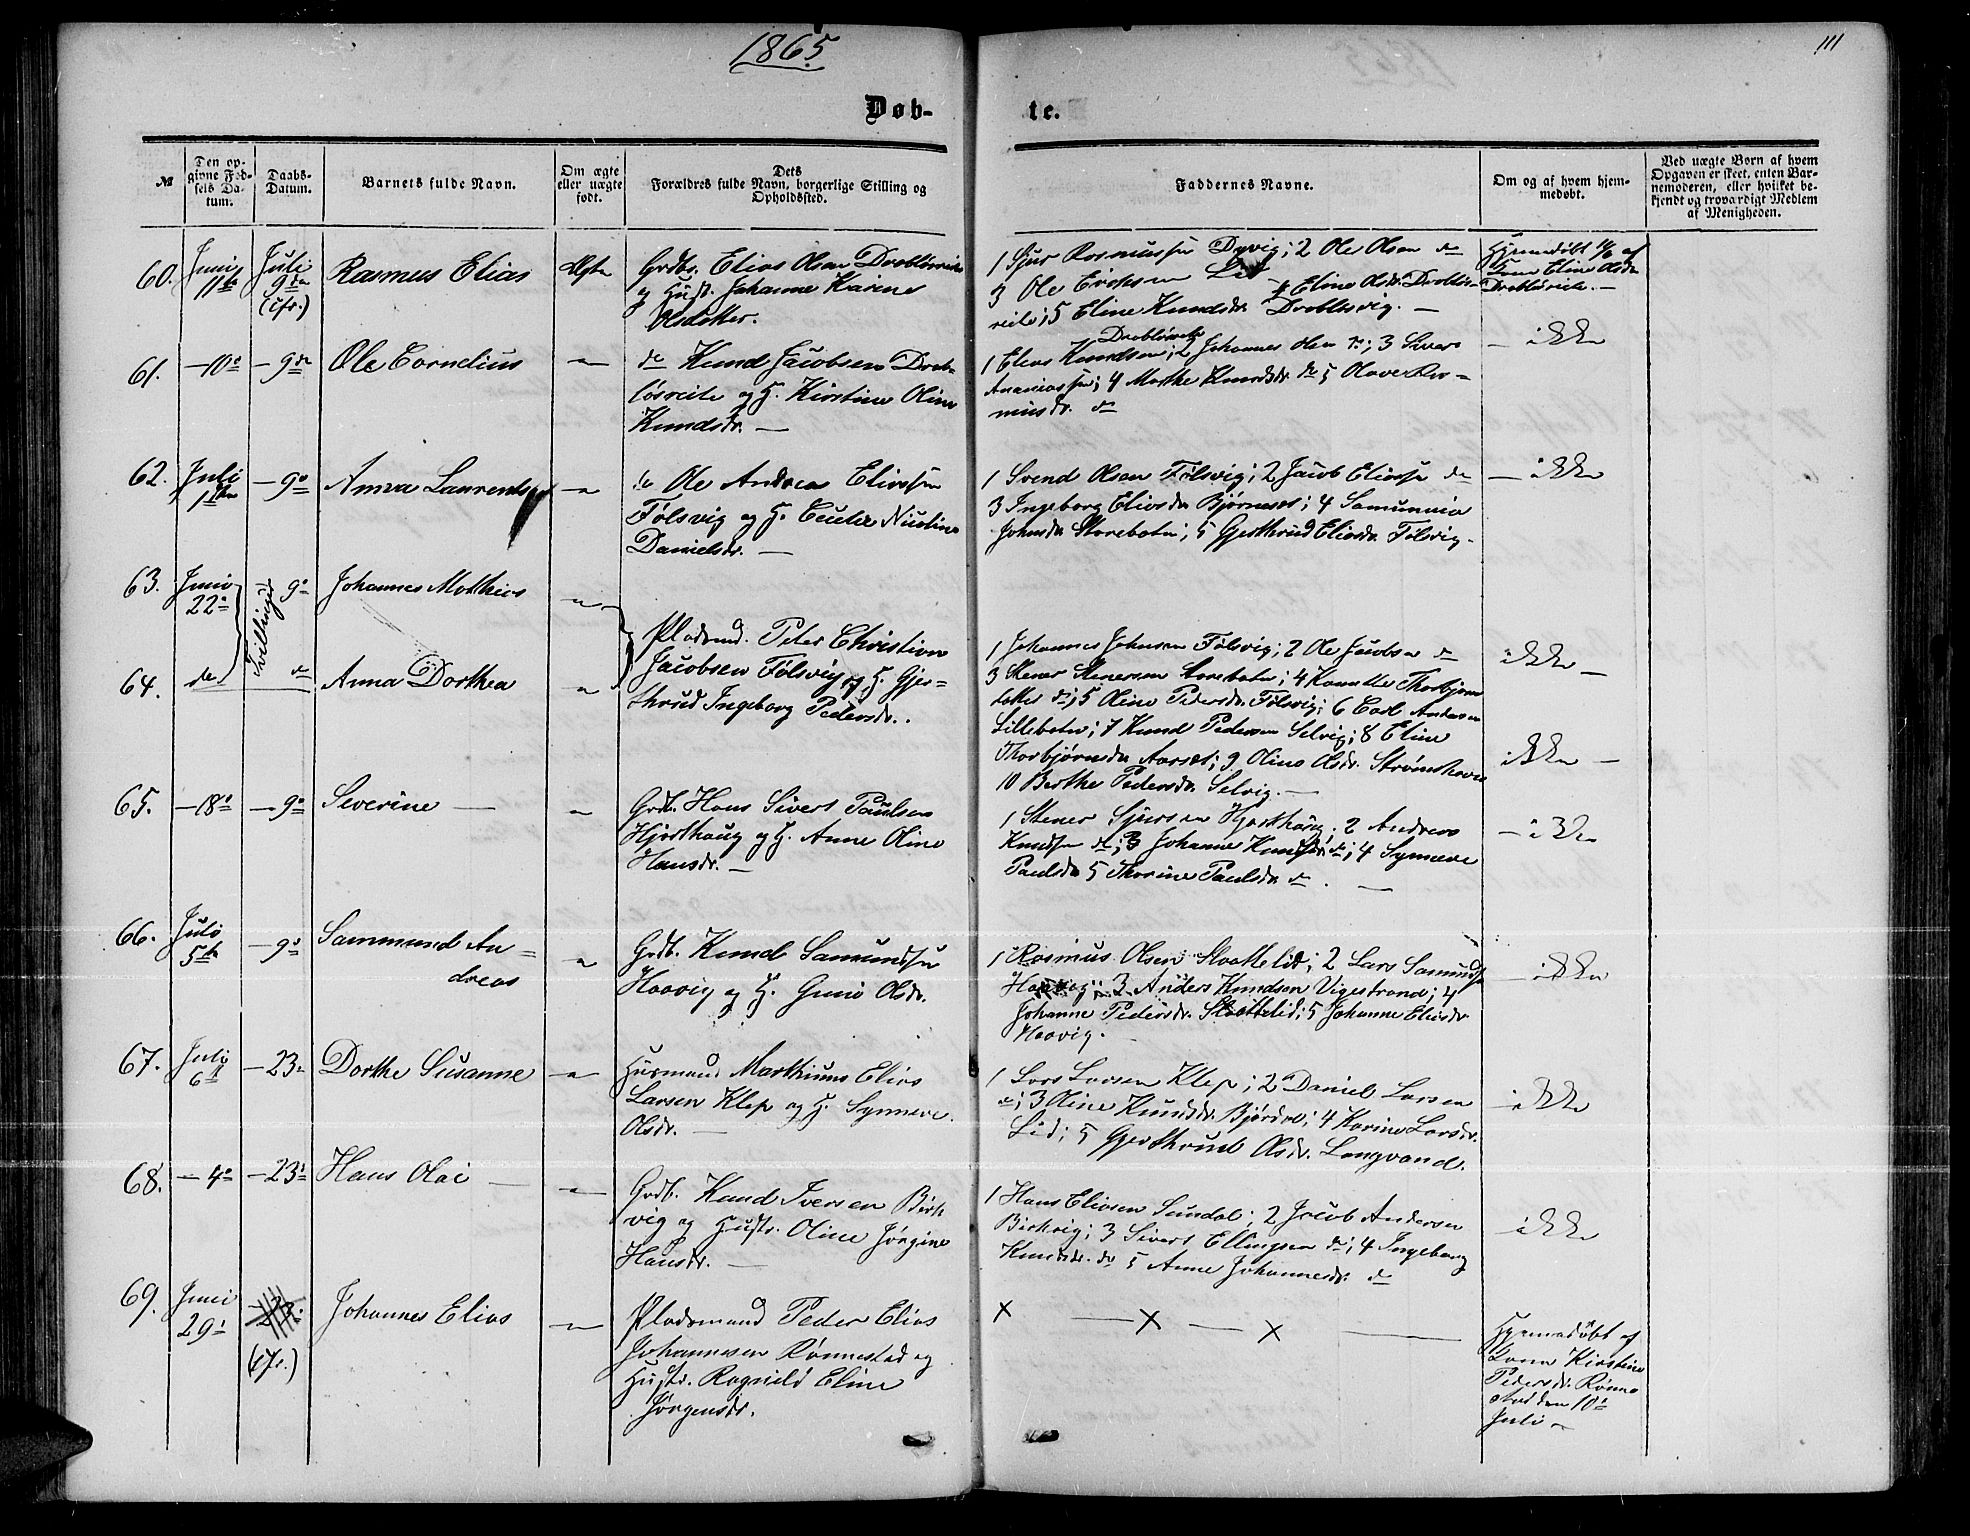 1865
111
Døb-
te.
№
Den opgivne Fødsels Datum.
Daabs-Datum.
Barnets fulde Navn.
Om ægte eller uægte født.
Dets Forældres fulde Navn, borgerlige Stilling og Opholdsted.
Faddernes Navne.
Om og af hvem hjemmedøbt.
Ved uægte Børn af hvem Opgaven er skeet, enten Barnemoderen, eller hvilket bekjendt og troværdigt Medlem af Menigheden.
60. Juni 11te Juli 9de Rasmus Elias Ægte
Grdbr. Elias Olsen
og Hust. Johanne Karine
Olsdatter.
1 Sjur Rasmussen Dyvig; 2 Ole Olsen do
3 Ole Eriksen Lid 4 Eline Olsdr.
reite; 5 Eline Knudsdr.
Hjemmedøbt af
Eline Olsdr
61. - 10o - 9de Ole Cornelius -"-
do Knud Jacobsen
løsreite og H. Kirstine Oline
Knudsdr. -
1 Elias Knudsen; 2 Johannes Olsen do; 3 Sivert
Ananiassen; 4 Marthe Knudsdr. do 5 Olave Ras-
musdr. do
- ikke
62. Juli 1ste - 9o Anna -"-
do Ole Andreas Eliassen
Følsvig og H. Nicoline
Danielsdr. -
1 Svend Olsen Følsvig; 2 Jacob Eliassen do
3 Ingeborg Eliasdr Bjørneset; 4
Johnsdr Storebotn; 5 Gjerthrud Eliasdr. Følsvig.
- ikke
63. Juni 22o 9o Johannes Mathias -"-
Tvillinger
Pladsmd. Peter Christian
64. do do Anna Dorthea -"-
Jacobsen Følsvig og H. Gjer-
thrud Ingeborg Pedersdr.
1 Johannes Johnsen Følsvig; 2 Ole Jacobsen do
3 Stener Stenersen Storebotn; 4 Thorbjørns
datter do; 5 Oline Pedersdr. Følsvig; 6 Carl Andersen
Lillebotn; 7 Knud Pedersen Selvig; 8 Eline
Thorbjørnsdr Aarset; 9 Oline Olsdr.
10 Berthe Pedersdr. Selvig. -
ikke -
ikke -
65. - 18o - 9o Severine - -"-
Grdb. Hans Sivert Paulsen
Hjorthaug og H. Anne Oline
Hansdr. -
1 Stener Sjursen Hjorthaug; 2 Andreas
Knudsen do; 3 Johanne Knudsdr. do; 4 Synneve
Paulsdr 5 Thorine Paulsdr do. -
- ikke
66. Juli 5te - 9o Sammund An-
dreas -"-
Grdb. Knud Samundsen
Haavig og H. Olsdr.
1 Rasmus Olsen Slottelid; 2 Lars Samundsen
Haavig; 3 Anders Knudsen Vigestrand; 4
Johanne Pedersdr. Slottelid; 5 Johanne Eliasdr
Haavig.
- ikke
67. Juli 6te - 23o Dorthe Susanne -"-
Husmand Elias
Larsen Klep og H. Synneve
Olsdr. -
1 Lars Larsen Klep; 2 Daniel Larsen
do; 3 Oline Knudsdr. Bjørdal; 4 Karine Larsdr.
Lid; 5 Gjerthrud Olsdr. Langvand.
- ikke
68. - 4o - 23o Hans Olai - -"-
Grdb. Knud Iversen Birk-
vig og Hustr. Oline Jørgine
Hansdr. -
1 Hans Eliasen Sundal; 2 Jacob Andersen
Birkvig; 3 Sivert Ellingsen do; 4 Ingeborg
Knudsdr. do 5 Anne Johannesdr. do
- ikke
69. Juni 29o Johannes Elias -"-
Pladsmand Peder Elias
Johannesen Rønnestad og
Hustr. Ragnild Eline
Jørgensdr.
x - x - x -
Hjemmedøbt af
Kirstine
Pedersdr. Rønne-
stad den 10o
Juli -